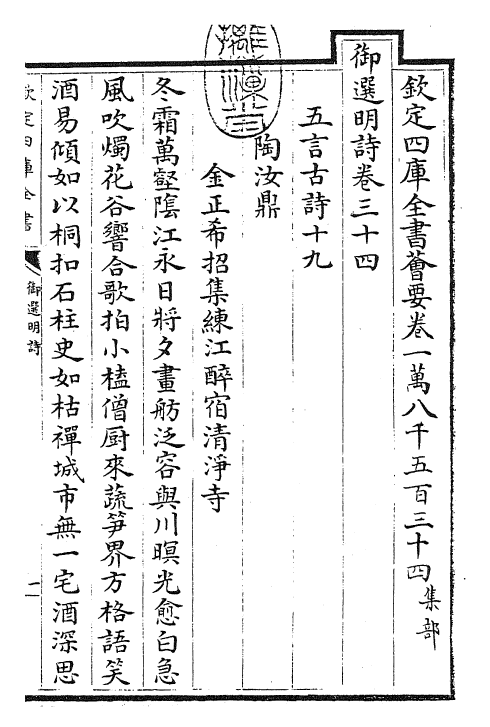 欽定四庫全書薈要卷一萬八千五百三十四集部
御選明詩卷三十四
五言古詩十九
陶汝鼎
金正希招集練江醉宿清淨寺
冬霜萬壑隂江永日將夕畫舫泛容與川暝光愈白急
風吹燭花谷響合歌拍小榼僧厨來蔬笋界方格語笑
酒易傾如以桐扣石柱史如枯禪城市無一宅酒深思
欽定四庫全書
御選明詩
一